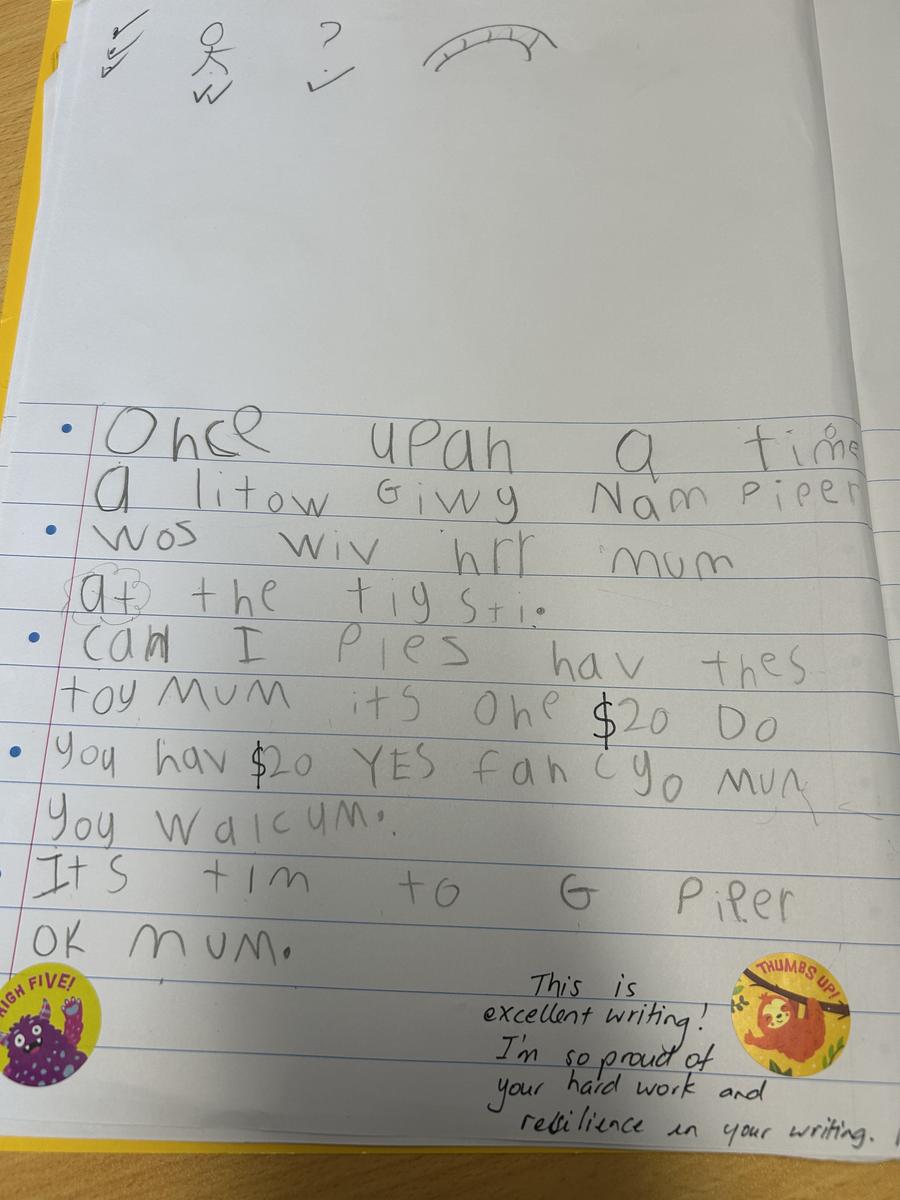 ?
Once upan a time
a litow Giwy Nam Piper
wos wiv hrr mum
at the tig sti.
can I Ples hav thes
toy MUM its one $20 Do
you hav $20 YES fancyo MUM
you walcum.
Its tim to G Piper
OK MUM.
HIGH FIVE!
THUMBS UP!
This is
excellent writing!
I'm so proud of
your hard work and
resilience in your writing.